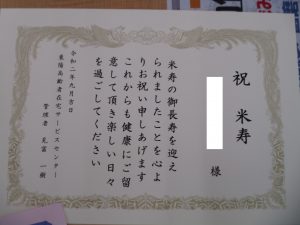 祝 米寿
様
米寿の御長寿を迎え
られましたことを心よ
りお祝い申しあげます
これからも健康にご留
意して頂き楽しい日々
を過ごしてください
令和二年九月吉日
東陽高齢者在宅サービスセンター
管理者 見富 一樹